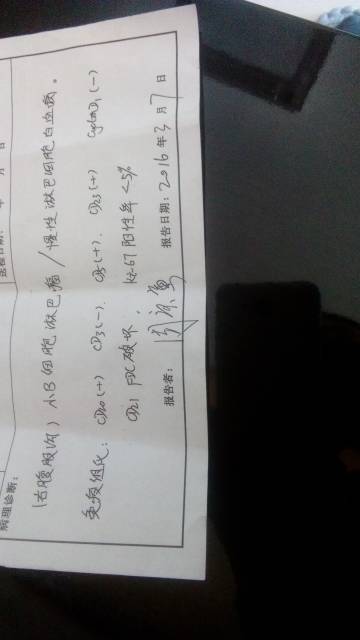 病理诊断：
(右腹股沟) 小B细胞淋巴瘤/慢性淋巴细胞白血病。
免疫组化: CD20(+) CD3(-). CD5(+). CD23(+) CyclinD1(-)
CD21 FDC破坏; Ki-67阳性率<5%
报告者:
报告日期: 2016年3月7日